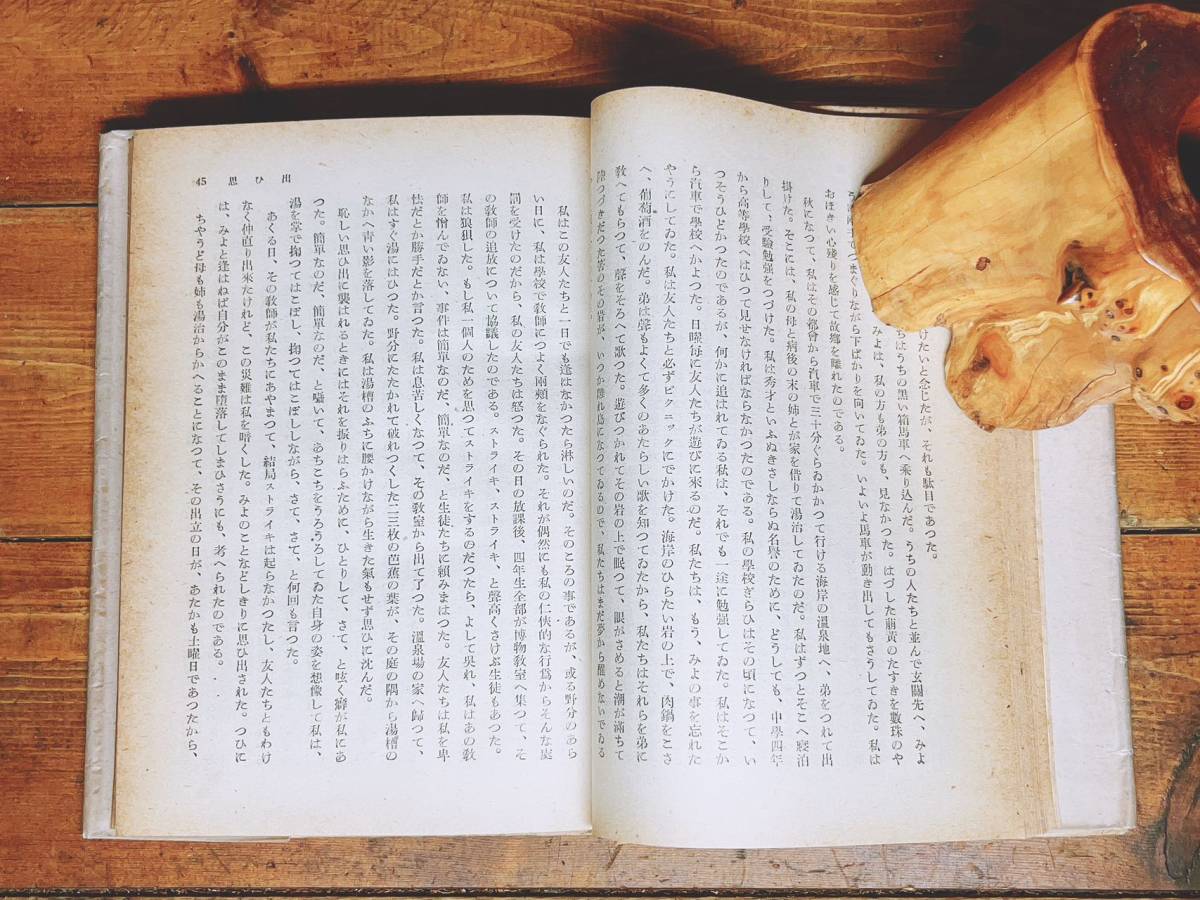 けたいと念じたが、それも駄目であつた。
ちはうちの黒い箱馬車へ乘り込んだ。うちの人たちと並んで玄關先へ、みよ
みよは、私の方も弟の方も、見なかつた。はづした萠黄のたすきを數珠のや
つまぐりながら下ばかりを向いてゐた。いよいよ馬車が動き出してもさうしてゐた。私は
おほきい心殘りを感じて故郷を離れたのである。
秋になつて、私はその都會から汽車で三十分ぐらゐかかつて行ける海岸の溫泉地へ、弟をつれて出
掛けた。そこには、私の母と病後の末の姉とが家を借りて湯治してゐたのだ。私はずつとそこへ寢泊
りして、受驗勉强をつづけた。私は秀才といふぬきさしならぬ名譽のために、どうしても、中學四年
から高等學校へはひつて見せなければならなかつたのである。私の學校ぎらひはその頃になつて、い
つそうひどかつたのであるが、何かに追はれてゐる私は、それでも一途に勉强してゐた。私はそこか
ら汽車で學校へかよつた。日曜每に友人たちが遊びに來るのだ。私たちは、もう、みよの事を忘れた
やうにしてゐた。私は友人たちと必ずピクニックにでかけた。海岸のひらたい岩の上で、肉鍋をこさ
へ、葡萄酒をのんだ。弟は聲もよくて多くのあたらしい歌を知つてゐたから、私たちはそれらを弟に
敎へてもらつて、聲をそろへて歌つた。遊びつかれてその岩の上で眠つて、眼がさめると潮が滿ちて
陸つづきだつた筈のその岩が、いつか離れ島になつてゐるので、私たちはまだ夢から醒めないでゐる
私はこの友人たちと一日でも逢はなかつたら淋しいのだ。そのころの事であるが、或る野分のあら
い日に、私は學校で敎師につよく兩頬をなぐられた。それが偶然にも私の仁俠的な行爲からそんな處
罰を受けたのだから、私の友人たちは怒つた。その日の放課後、四年生全部が博物敎室へ集つて、そ
の敎師の追放について協議したのである。ストライキ、ストライキ、と聲高くさけぶ生徒もあつた。
私は狼狽した。もし私一個人のためを思つてストライキをするのだつたら、よして吳れ、私はあの敎
師を憎んでゐない、事件は簡單なのだ、簡單なのだ、と生徒たちに賴みまはつた。友人たちは私を卑
怯だとか勝手だとか言つた。私は息苦しくなつて、その敎室から出て了つた。溫泉場の家へ歸つて、
私はすぐ湯にはひつた。野分にたたかれて破れつくした二三枚の芭蕉の葉が、その庭の隅から湯槽の
なかへ靑い影を落してゐた。私は湯槽のふちに腰かけながら生きた氣もせず思ひに沈んだ。
恥しい思ひ出に襲はれるときにはそれを振りはらふために、ひとりして、さて、と呟く癖が私にあ
つた。簡單なのだ、簡單なのだ、と囁いて、あちこちをうろうろしてゐた自身の姿を想像して私は、
湯を掌で掬つてはこぼし、掬つてはこぼししながら、さて、さて、と何回も言つた。
あくる日、その敎師が私たちにあやまつて、結局ストライキは起らなかつたし、友人たちともわけ
なく仲直り出來たけれど、この災難は私を暗くした。みよのことなどしきりに思ひ出された。つひに
は、みよと逢はねば自分がこのまま墮落してしまひさうにも、考へられたのである。
ちやうど母も姉も湯治からかへることになつて、その出立の日が、あたかも土曜日であつたから、
45 思ひ出